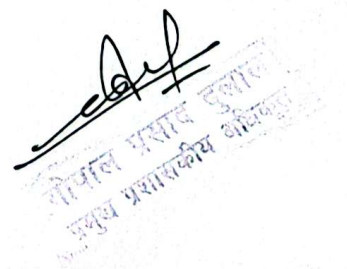 गोपाल प्रसाद दुलाल
प्रमुख प्रशासकीय अधिकृत